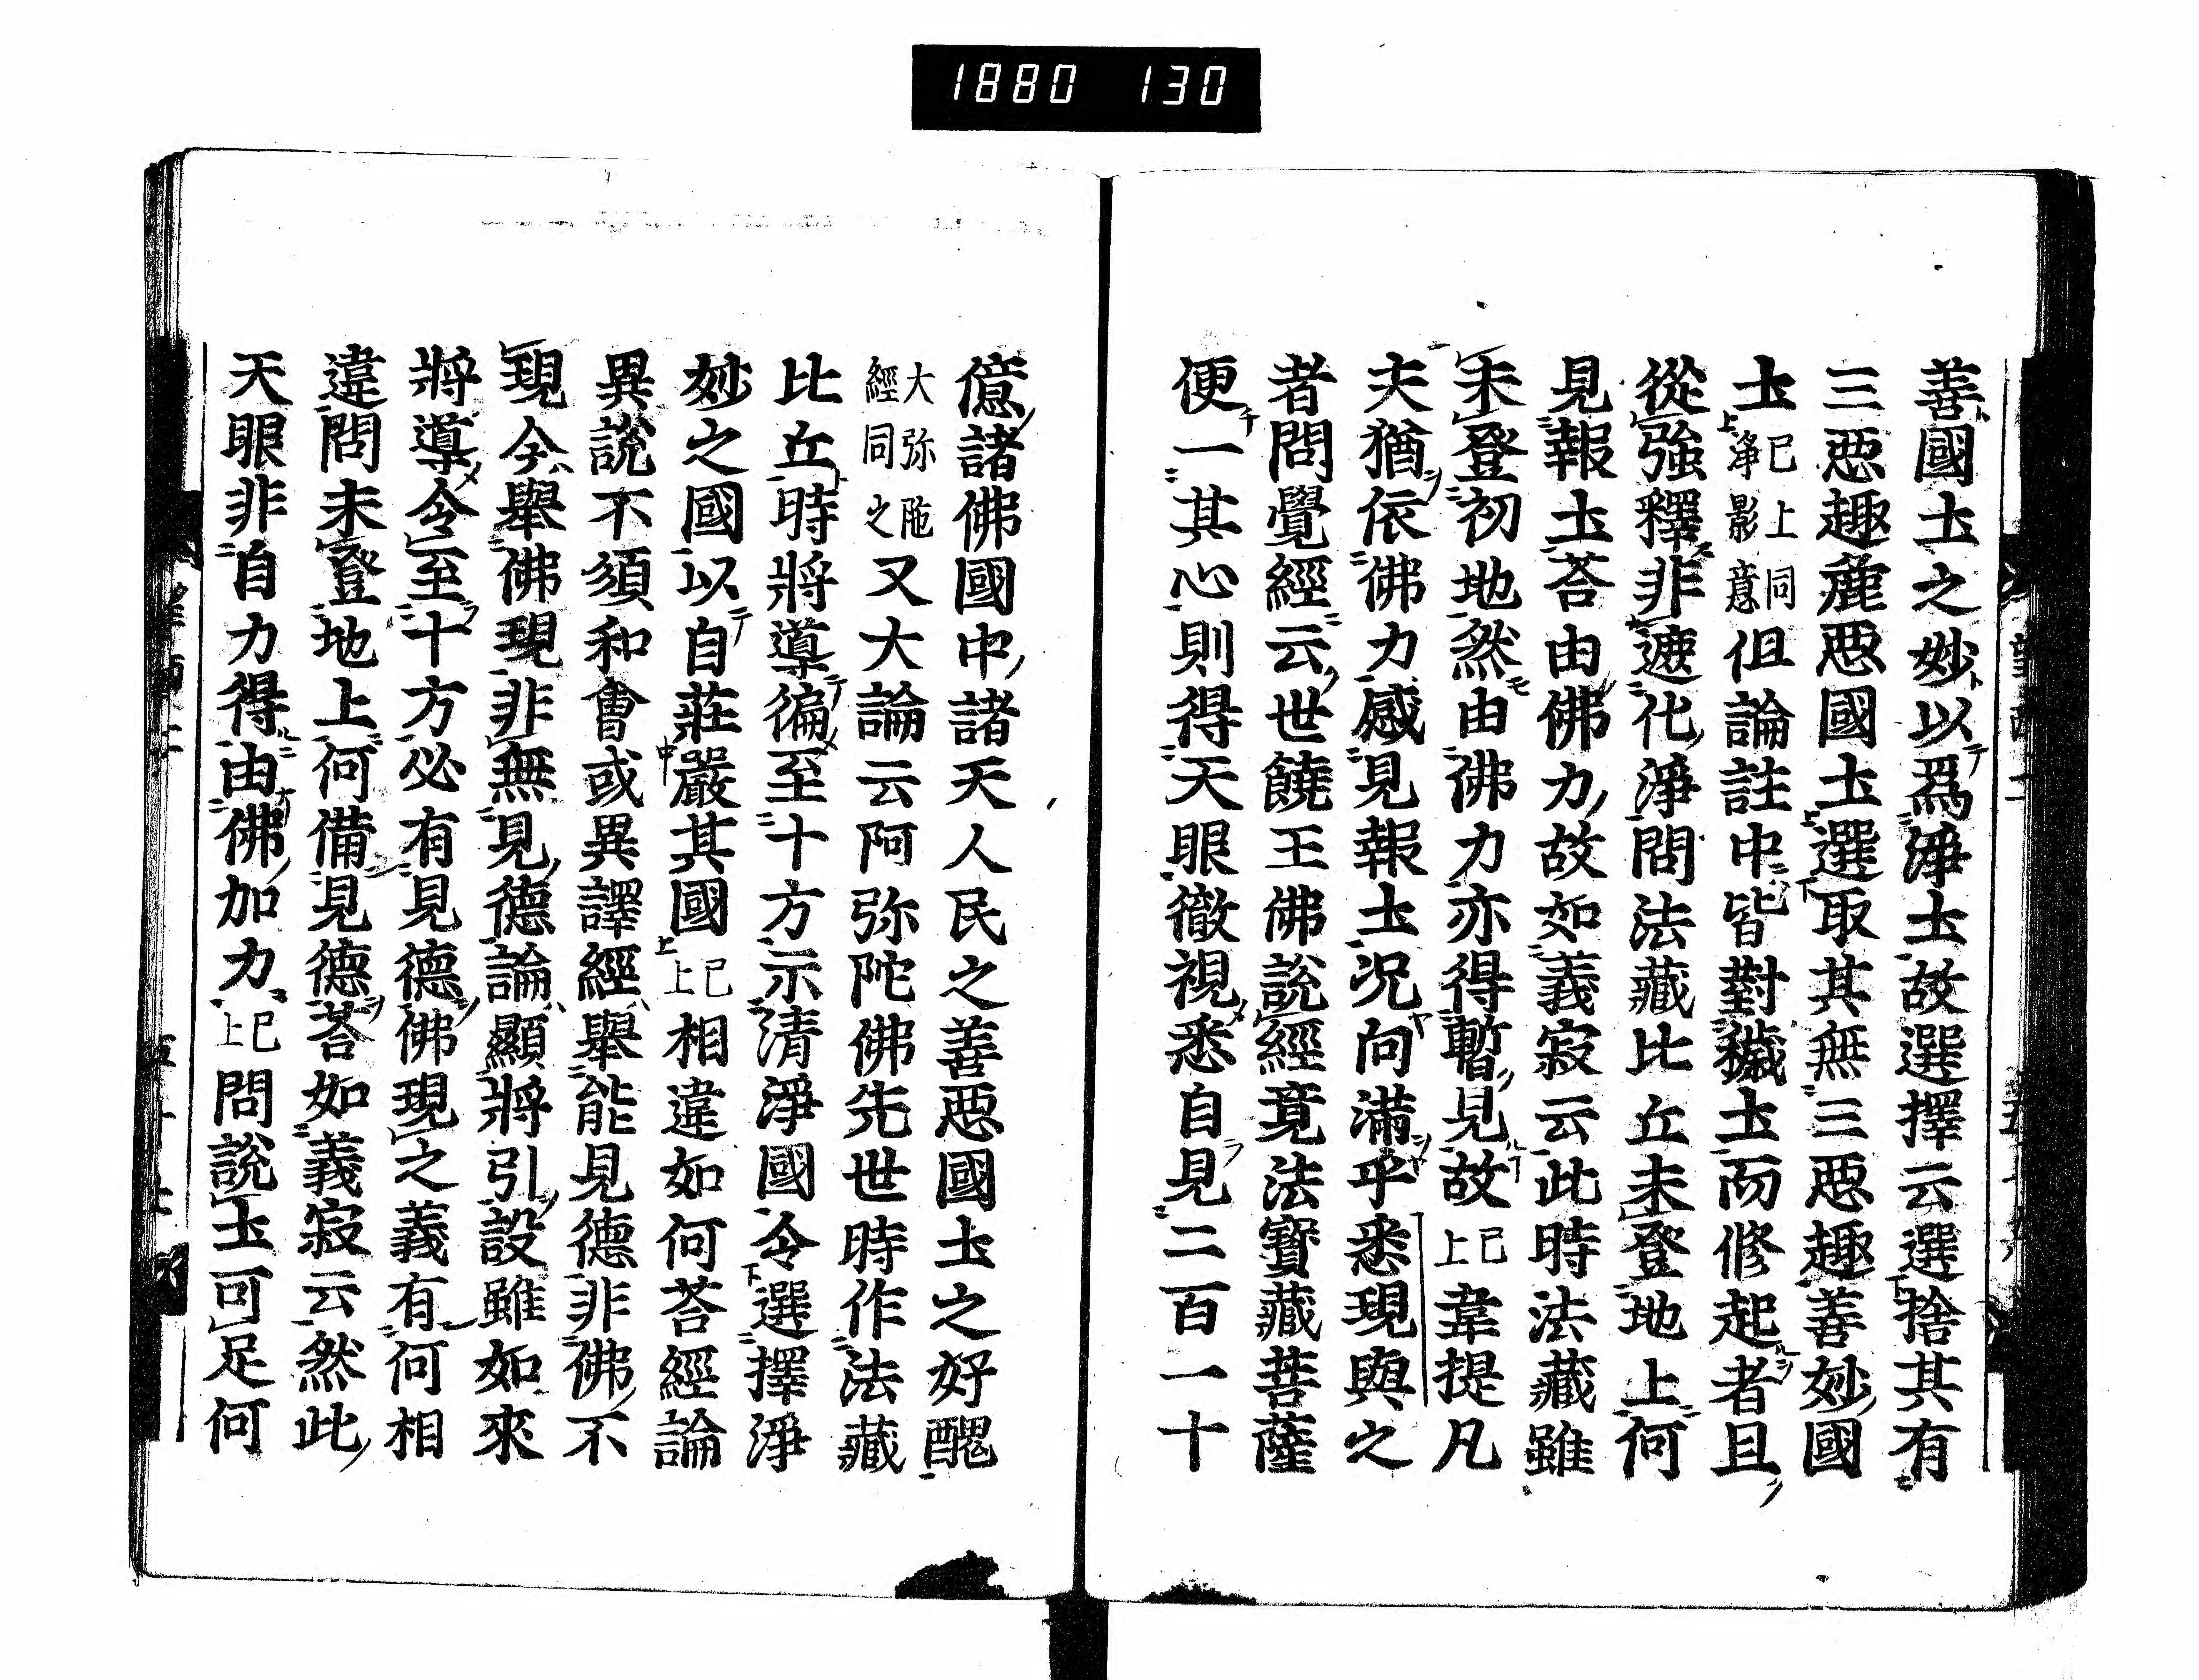 1880 130
善國土之妙以爲淨土故選擇云選捨其有
三惡趣麁惡國土選取其無三惡趣善妙國
土已上同淨影意但論註中皆對穢土而修起者且
從強釋非遮化淨問法藏比丘未登地上何
見報土荅由佛力故如義寂云此時法藏雖
未登初地然由佛力亦得暫見故已上韋提凡
夫猶依佛力感見報土況向滿乎悉現與之
者問覺經云世饒王佛說經竟法寶藏菩薩
便一其心則得天眼徹視悉自見二百一十
億諸佛國中諸天人民之善惡國土之好醜
大弥陁經同之又大論云阿弥陀佛先世時作法藏
比丘時將導徧至十方示清淨國令選擇淨
妙之國以自莊嚴其國已上相違如何荅經論
異說不須和會或異譯經舉能見德非佛不
現今舉佛現非無見德論顯將引設雖如來
將導令至十方必有見德佛現之義有何相
違問未登地上何備見德荅如義寂云然此
天眼非自力得由佛加力已上問說土可足何